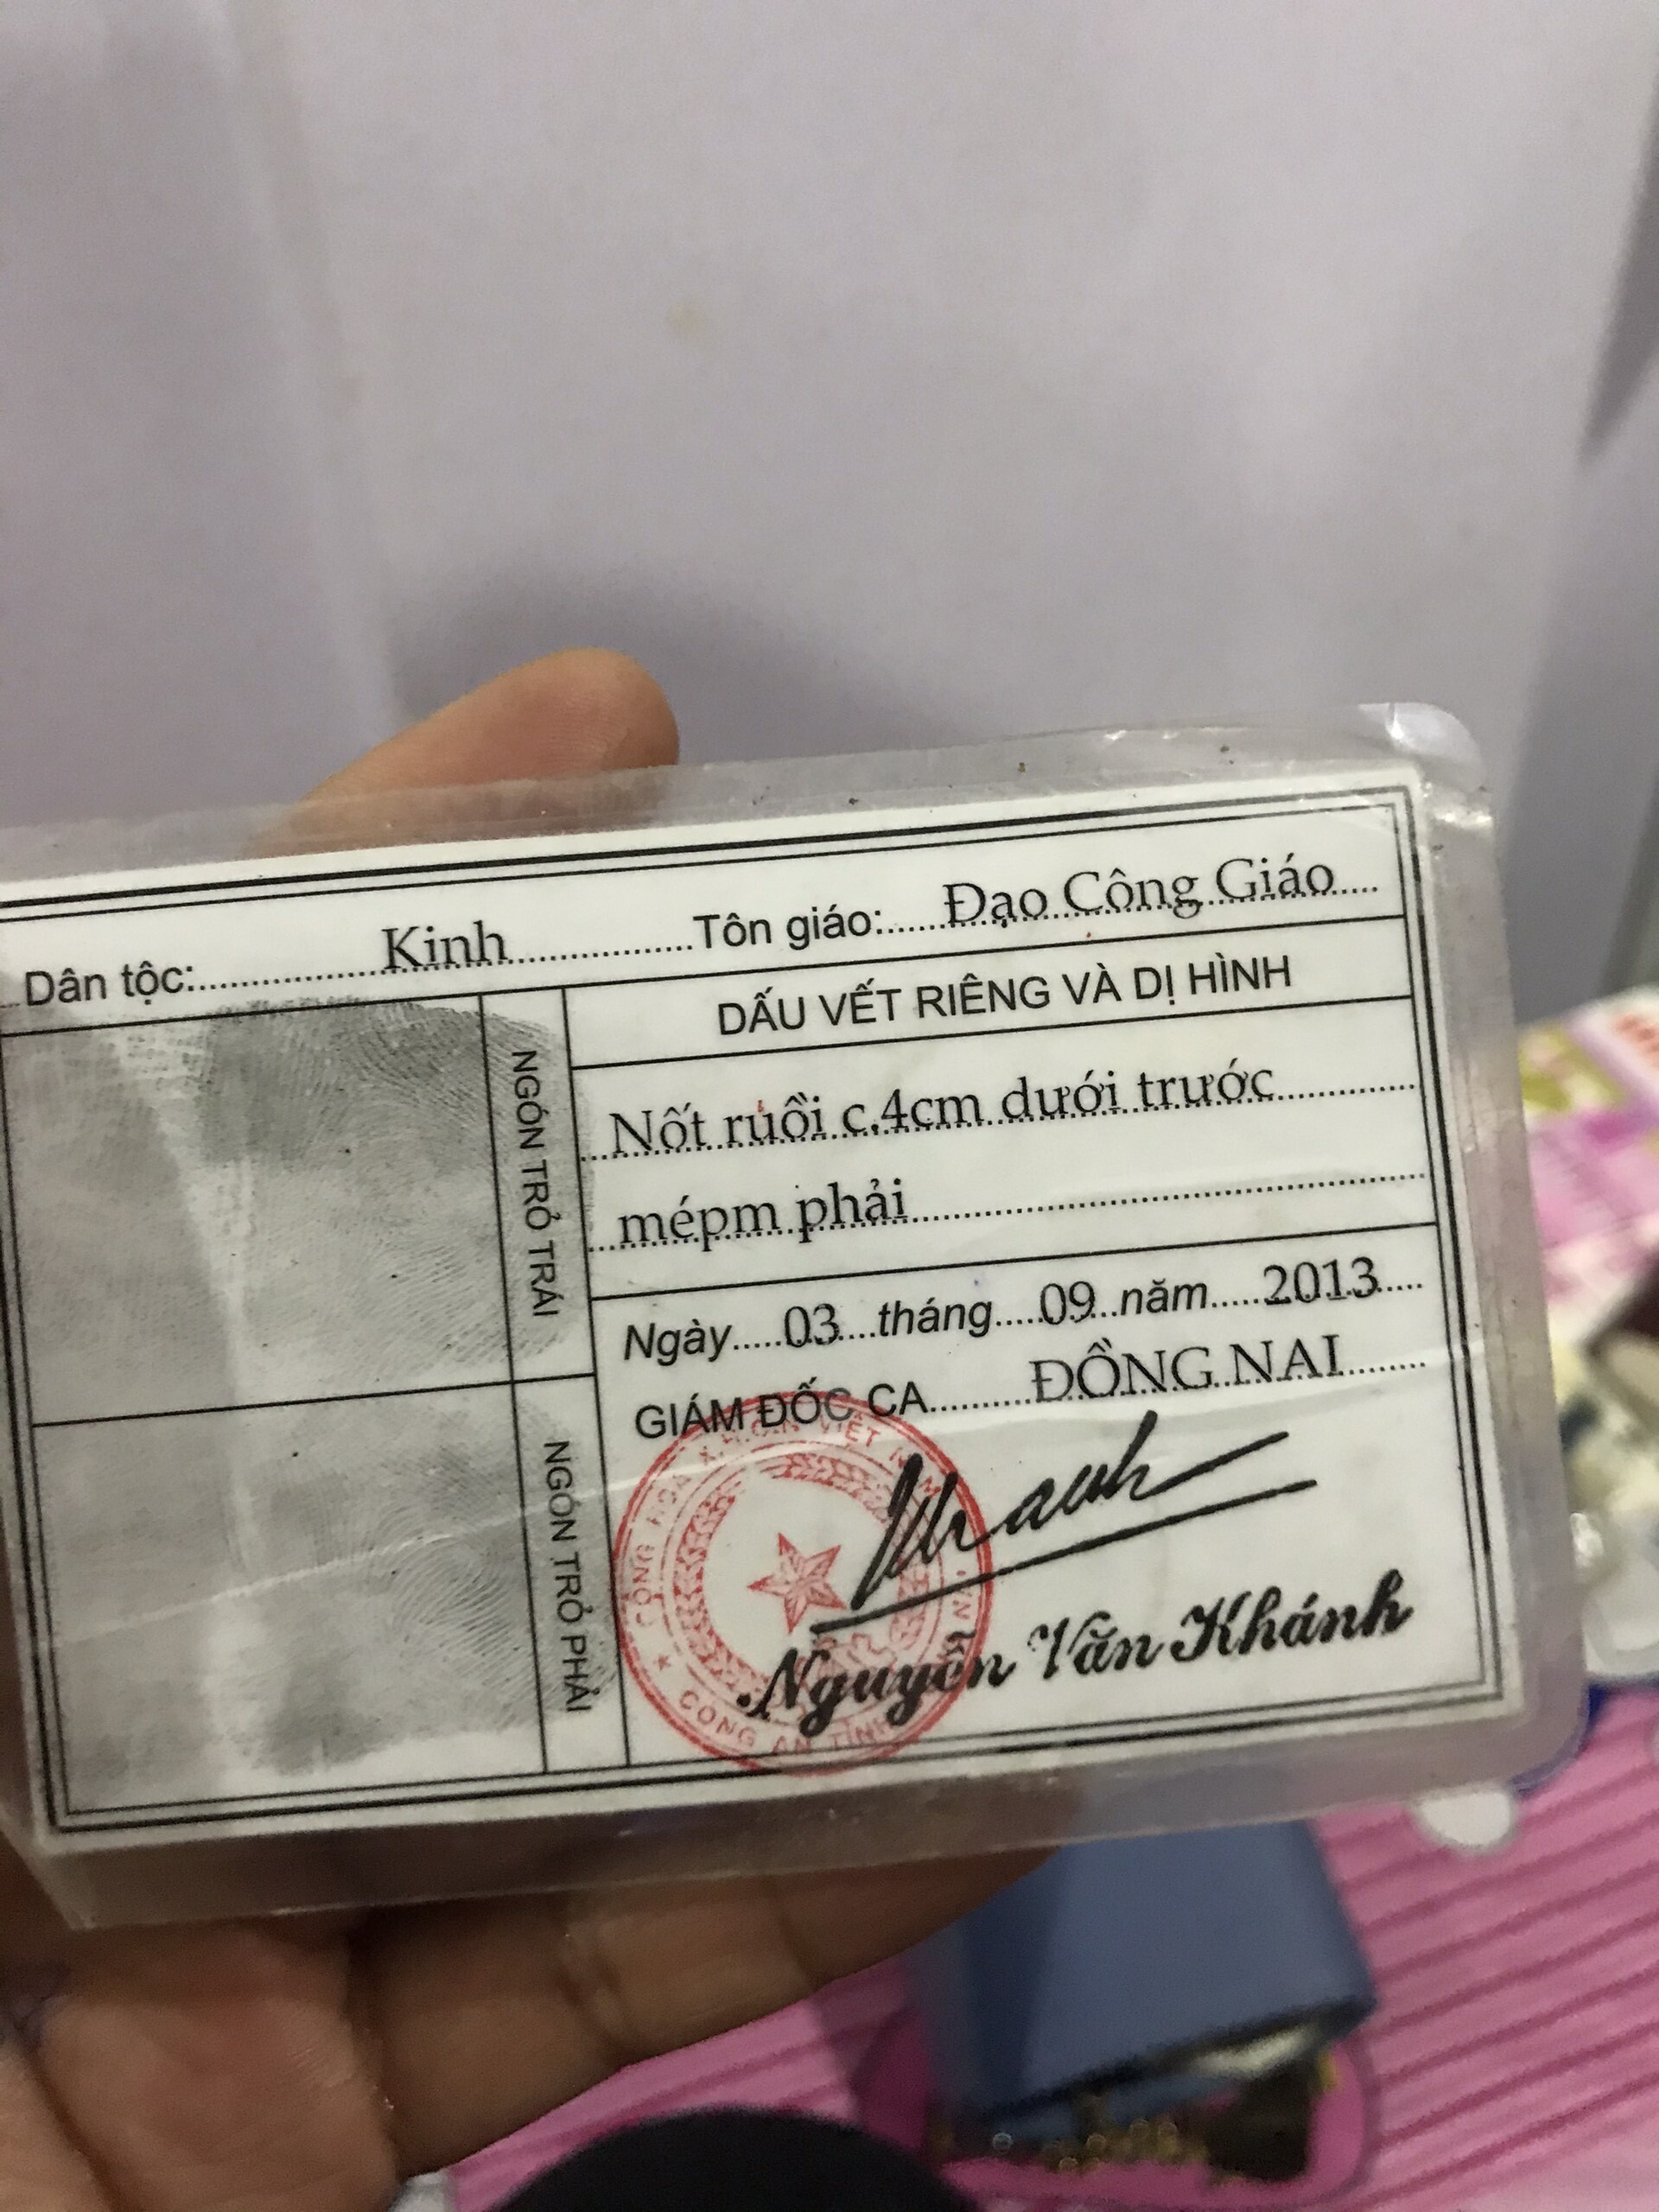 Dân tộc: Kinh Tôn giáo: Đạo Công Giáo
NGÓN TRỎ TRÁI
NGÓN TRỎ PHẢI
DẤU VẾT RIÊNG VÀ DỊ HÌNH
Nốt ruồi c.4cm dưới trước
mépm phải
Ngày 03 tháng 09 năm 2013
GIÁM ĐỐC CA ĐỒNG NAI
CỘNG HOÀ X.H.C.N VIỆT NAM
CÔNG AN TỈNH
Nguyễn Văn Khánh